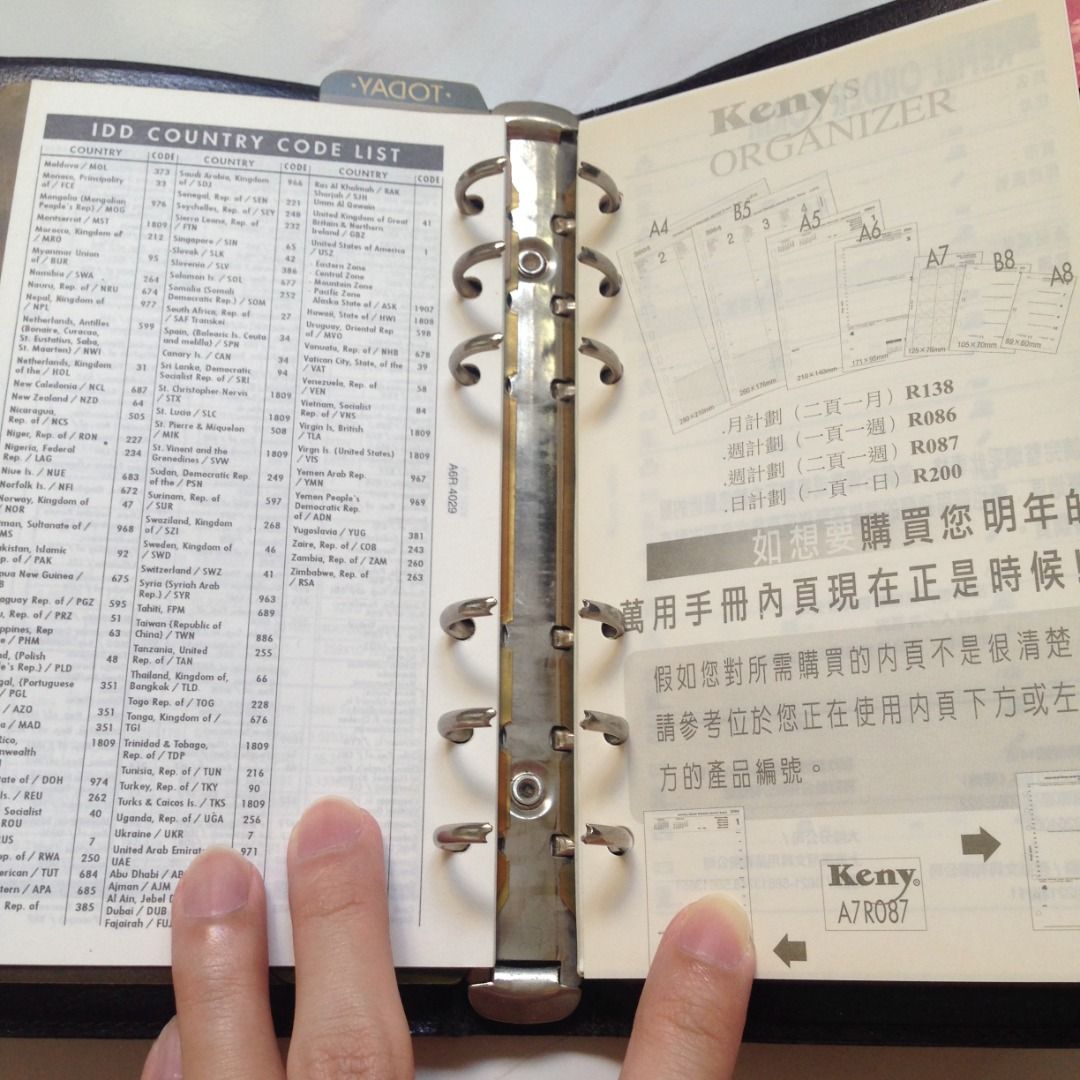 ·TODAY·
IDD COUNTRY CODE LIST
COUNTRY CODE
Moldova / MOL 373
Monaco, Principality
of / FCE 33
Mongolia (Mongolian
People's Rep.) / MOG 976
Montserrat / MST 1809
Morocco, Kingdom of
/ MRO 212
Myanmar Union
of / BUR 95
Namibia / SWA 264
Nauru, Rep. of / NRU 674
Nepal, Kingdom of
/ NPL 977
Netherlands, Antilles
(Bonaire, Curacao,
St. Eustatius, Saba,
St. Maarten) / NWI 599
Netherlands, Kingdom
of the / HOL 31
New Caledonia / NCL 687
New Zealand / NZD 64
Nicaragua,
Rep. of / NCS 505
Niger, Rep. of / RDN 227
Nigeria, Federal
Rep. / LAG 234
Niue Is. / NUE 683
Norfolk Is. / NFI 672
Norway, Kingdom of
/ NOR 47
man, Sultanate of /
MS 968
akistan, Islamic
p. of / PAK 92
pua New Guinea / 675
aguay Rep. of / PGZ 595
, Rep. of / PRZ 51
ippines, Rep
e / PHM 63
nd, (Polish
le's Rep.) / PLD 48
gal, (Portuguese
/ PGL 351
/ AZO 351
a / MAD 351
Rico,
nwealth 1809
tate of / DOH 974
Is. / REU 262
Socialist
ROU 40
RUS 7
p. of / RWA 250
erican / TUT 684
stern / APA 685
Rep. of 385
COUNTRY CODE
Saudi Arabia, Kingdom
of / SDJ 966
Senegal, Rep. of / SEN 221
Seychelles, Rep. of / SEY 248
Sierra Leone, Rep. of
/ FTN 232
Singapore / SIN 65
Slovak / SLK 42
Slovenia / SLV 386
Solomon Is. / SOL 677
Somalia (Somali
Democratic Rep.) / SOM 252
South Africa, Rep. of
/ SAF Transkei 27
Spain, (Balearic Is. Ceuta
and melilla) / SPN 34
Canary Is. / CAN 34
Sri Lanka, Democratic
Socialist Rep. of / SRI 94
St. Christopher-Nervis
/ STX 1809
St. Lucia / SLC 1809
St. Pierre & Miquelon
/ MIK 508
St. Vincent and the
Grenedines / SVW 1809
Sudan, Democratic Rep.
of the / PSN 249
Surinam, Rep. of
/ SUR 597
Swaziland, Kingdom
of / SZI 268
Sweden, Kingdom of
/ SWD 46
Switzerland / SWZ 41
Syria (Syriah Arab
Rep.) / SYR 963
Tahiti, FPM 689
Taiwan (Republic of
China) / TWN 886
Tanzania, United
Rep. of / TAN 255
Thailand, Kingdom of,
Bangkok / TLD 66
Togo Rep. of / TOG 228
Tonga, Kingdom of /
TGI 676
Trinidad & Tobago,
Rep. of / TDP 1809
Tunisia, Rep. of / TUN 216
Turkey, Rep. of / TKY 90
Turks & Caicos Is. / TKS 1809
Uganda, Rep. of / UGA 256
Ukraine / UKR 7
United Arab Emirat 971
UAE
Abu Dhabi / AB
Ajman / AJM
Al Ain, Jebel D
Dubai / DUB
Fajairah / FUJ
COUNTRY CODE
Ras Al Khaimah / RAK
Sharjah / SJH
Umm Al Qawain
United Kingdom of Great
Britain & Northern
Ireland / GBZ 41
United States of America
/ USZ 1
· Eastern Zone
· Central Zone
· Mountain Zone
· Pacific Zone
Alaska State of / ASK 1907
Hawaii, State of / HWI 1808
Uruguay, Oriental Rep
of / MVO 598
Vanuatu, Rep. of / NHB 678
Vatican City, State, of the
/ VAT 39
Venezuela, Rep. of
/ VEN 58
Vietnam, Socialist
Rep. of / VNS 84
Virgin Is, British
/ TLA 1809
Virgn Is. (United States)
/ VIS 1809
Yemen Arab Rep.
/ YMN 967
Yemen People's
Democratic Rep.
of / ADN 969
Yugoslavia / YUG 381
Zaire, Rep. of / COB 243
Zambia, Rep. of / ZAM 260
Zimbabwe, Rep. of
/ RSA 263
A6R 4029
Keny's
ORGANIZER
A4
B5
A5
A6
A7
B8
A8
280×210mm
260×176mm
210×140mm
171×95mm
125×76mm
105×70mm
89×60mm
.月計劃（二頁一月）R138
.週計劃（一頁一週）R086
.週計劃（二頁一週）R087
.日計劃（一頁一日）R200
如想要購買您明年的
萬用手冊內頁現在正是時候！
假如您對所需購買的內頁不是很清楚
請參考位於您正在使用內頁下方或左
方的產品編號。
Keny®
A7R087